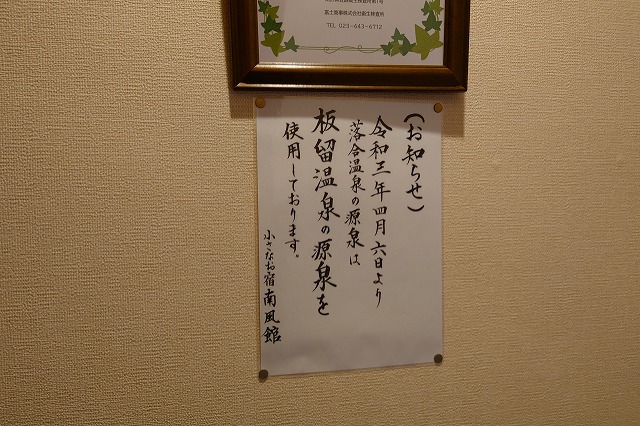 富士商事株式会社衛生検査所
TEL 023-643-6712
(お知らせ)
令和三年四月六日より
落合温泉の源泉は
板留温泉の源泉を
使用しております。
小さなお宿南風館